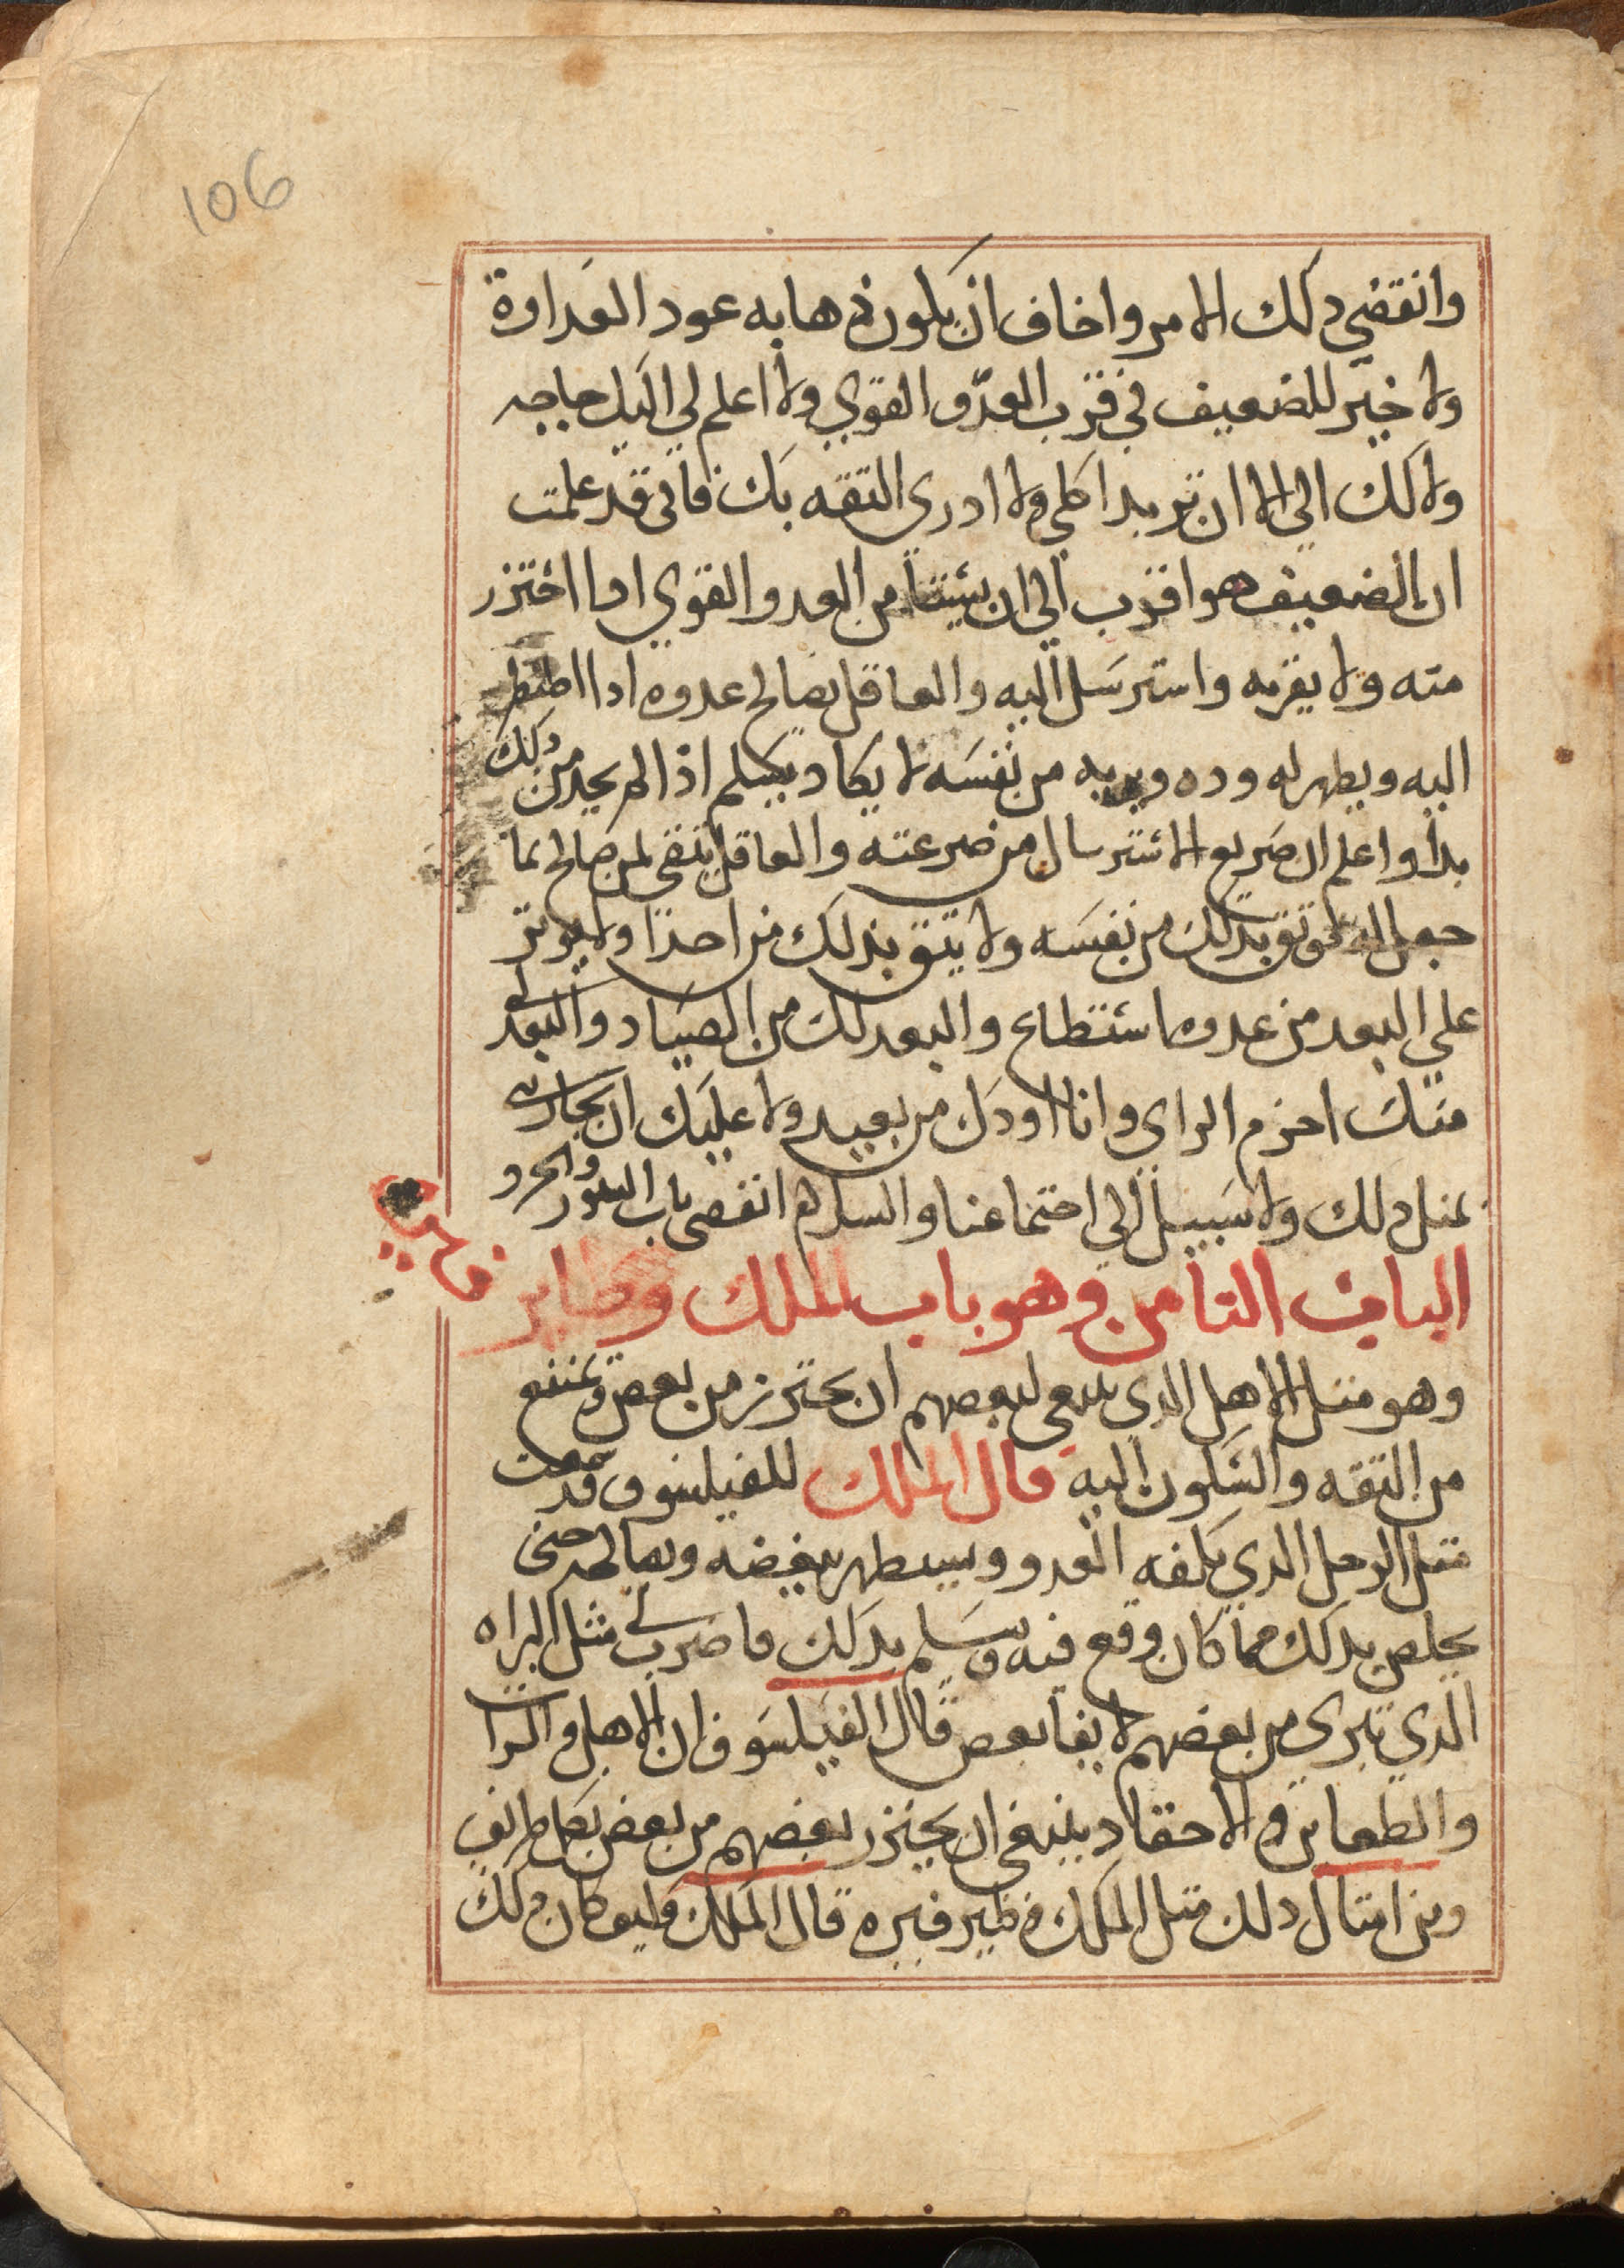 106
وانقضي دلك الامر واخاف ان يكون ذهابه عود العداوة
ولا خير للضعيف في قرب العدّو القوي ولا اعلم لي اليك حاجه
ولا لك الي الا ان تريد اكلي ولا ادرى التقه بك فانى قد علمت
ان الضعيف هو اقرب الي ان من العدو القوي ادا احترر
منه ولا يقربه واسترسل اليه والعاقل يصالح عدوه ادا اضطر
اليه ويظهر له وده ويريه من نفسه لا يكاد اذا لم يجد من دلك
بدا واعلم ان صريع الاسترسال من صرعته والعاقل يتقى لمن صالح بما
جعل له توتق بدلك من نفسه ولا يتق بذلك من احدا ولا يوتر
علي البعد من عدوه ما ستطاع والبعد لك من الصياد والبعد لي
منك احزم الراى وانا اودك من بعيد ولا عليك ان تجازى
بمتل دلك ولا سبيل الي اجتماعنا والسلام انقضى باب السنور والجرد
الباب التامن وهو باب الملك وطاير
وهو متل الاهل الدي ينبغي لبعضهم ان يحترز من بعض ويمتنع
من التقه والسكون اليه قال الملك للفيلسوف قد سمعت
متل الرجل الدي يكلفه العدو ويستظهر ببغضه ويصالحه حتى
يخلص بدلك مما كان وقع فيه ويسلم بدلك فاضرب لي مثل
الدي تبرى من بعضهم لا يفا بعض قال الفيلسوف ان الاهل
والاحقاد ينبغى ان يحترز بعضهم من بعض بكل
ومن امتال دلك متل الملك وطير فنزه قال الملك وكيف كان دلك